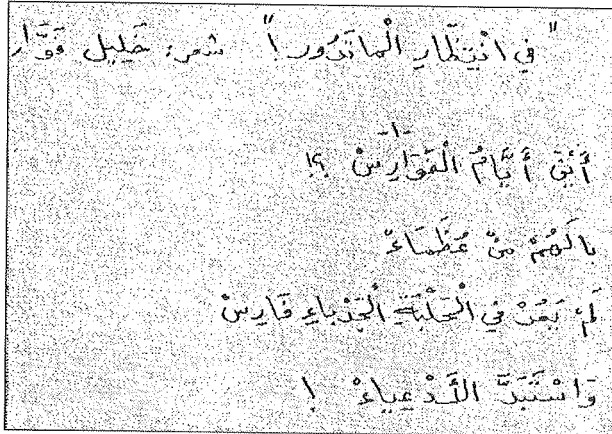 "في انْتِظَارِ الْماتَدُور!" شعر: خَلِيل فَوَّار
-١-
أَيْنَ أَيَّامُ الْفَوَارِسْ ؟!
يالَهُمْ مِنْ عُظَمَاءْ
لَمْ يَعُدْ في الْحَلْبَةِ الْجَدْباءِ فَارِسْ
وَاسْتَبَدَّ الأَدْعِياءْ !